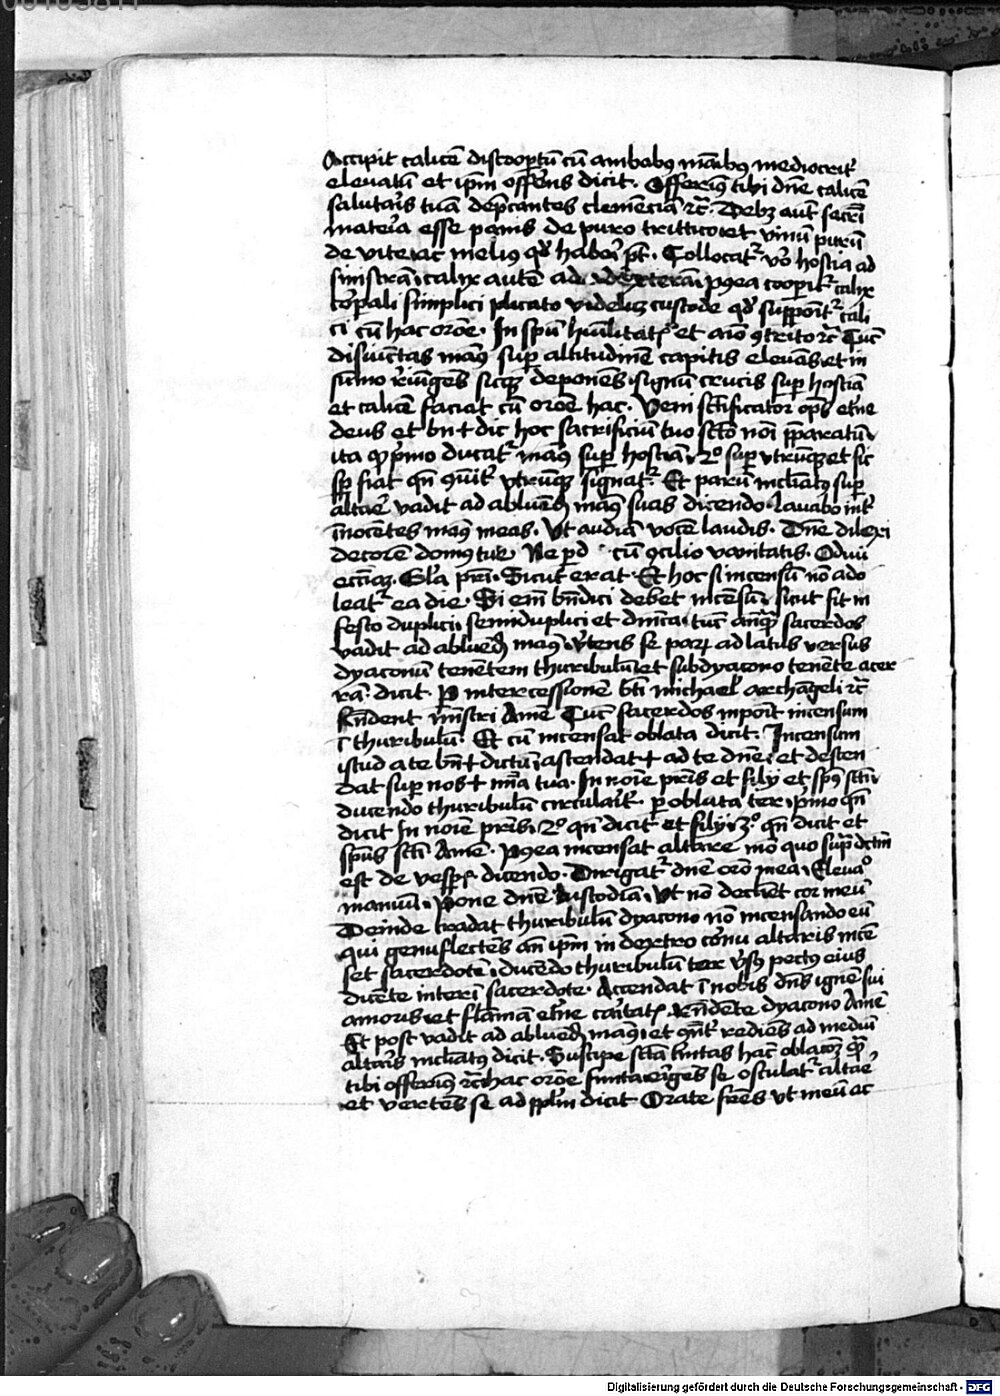 Accipit calicē discoopertū cū ambabꝰ mãibꝰ mediocrit̾
elevatū et ip̄m offerēs dicit. Offerimꝰ tibi dn̄e calicē
salutaris tuā dep̄cantes clemēciā ⁊c̄. Debꝫ aut̄ sacri
materia esse panis de puro trittico et vinū purū
de vite ac meliꝰ qd̓ haberi pt̄. Collocat̾ v̓o hostia ad
sinistrā, calix autē ad dexterā, p9ea coopit̾ calix
corporali simplici plicato videlicꝫ custode qd̓ suppoit̾ cali
ci cū hac orōe. In spū hūilitatꝭ et aīo 9trito ⁊c̄ Tūc
disiūctas manꝰ sup altitudinē capitis elevās et in
sūmo iūgens sicqꝫ deponēs, signū crucis sup hostiā
et calicē faciat cū orōe hac. Veni sc̄tificator op̄s et̓ne
deus et bn̄ + dic hoc sacrificiū tuo sc̄to noī p̄paratū,
ita qꝫ p̓mo ducat̾ manꝰ sup hostiā, 2º sup vtrūqꝫ et sic
sp̄ fiat qn̄ 9iūt̾ vtrūqꝫ signat̾. Et parū inclinatꝰ sup
altare vadit ad abluēdū manꝰ suas dicendo. Lavabo int̾
īnocentes manꝰ meas. Vt audiā vocē laudis. Dn̄e dilexi
decorē domꝰ tue Ne pd cū 9cilio vanitatis. Odivi
eccīaꝫ. Gl̄a p̄ri. Sicut erat. Et hoc si incensū nō ado
leat̾ ea die. Si em̄ bn̄dici debet incensū, sicut fit in
festo duplici, semiduplici et dn̄ica, tūc anqꝫ sacerdos
vadit ad abluēdū manꝰ, vertens se parū ad latus versus
dyaconū tenētem thuribulū et subdyacono tenēte acer
rā, dicit. Per intercessionē bt̄i michael̓ archāgeli ⁊c̄
Rn̄dent mīstri Amē Tūc sacerdos inpoīt incensum
ī thuribulū. Et cū incensat oblata dicit. Incensum
istud a te bn̄ + dictū, ascendat + ad te dn̄e, et descen
dat sup nos + mīa tua. In noīe pr̄is et filij et spūs sc̄ti,
ducendo thuribulū circularit̾ per oblata ter, p̓mo qn̄
dicit In noīe pr̄is, 2º qn̄ dicit et filij, 3º qn̄ dicit et
spūs sc̄ti Amē. P9ea incensat altare mō quo supͣdictm̄
est de vesp̄ꝭ dicendo. Dirigat̾ dn̄e orō mea, Elevaº
manuū. Pone dn̄e custodiā, Vt nō declinet cor meū
Deinde tradat thuribulū dyacono nō incensando eū
qui genuflectēs an̄ ip̄m in dextro cornu altaris incē
set sacerdotē, ducēdo thuribulū ter v̓sꝰ pectꝰ eius
dicēte interī sacerdote. Accendat ī nobis dn̄s ignē sui
amoris et flāmā et̓ne caritatꝭ. Rn̄dente dyacono Amē
Et post vadit ad abluēdū manꝰ, et rediēs ad mediū
altaris inclinatꝰ dicit. Suscipe sc̄ta trinitas hāc oblacōꝫ qͣm
tibi offerimꝰ ⁊c̄ hac orōe finita erigens se osculat̾ altare
et vertens se ad pp̄lm̄ dicit Orate fr̄es vt meū ac
Digitalisierung gefördert durch die Deutsche Forschungsgemeinschaft - DFG